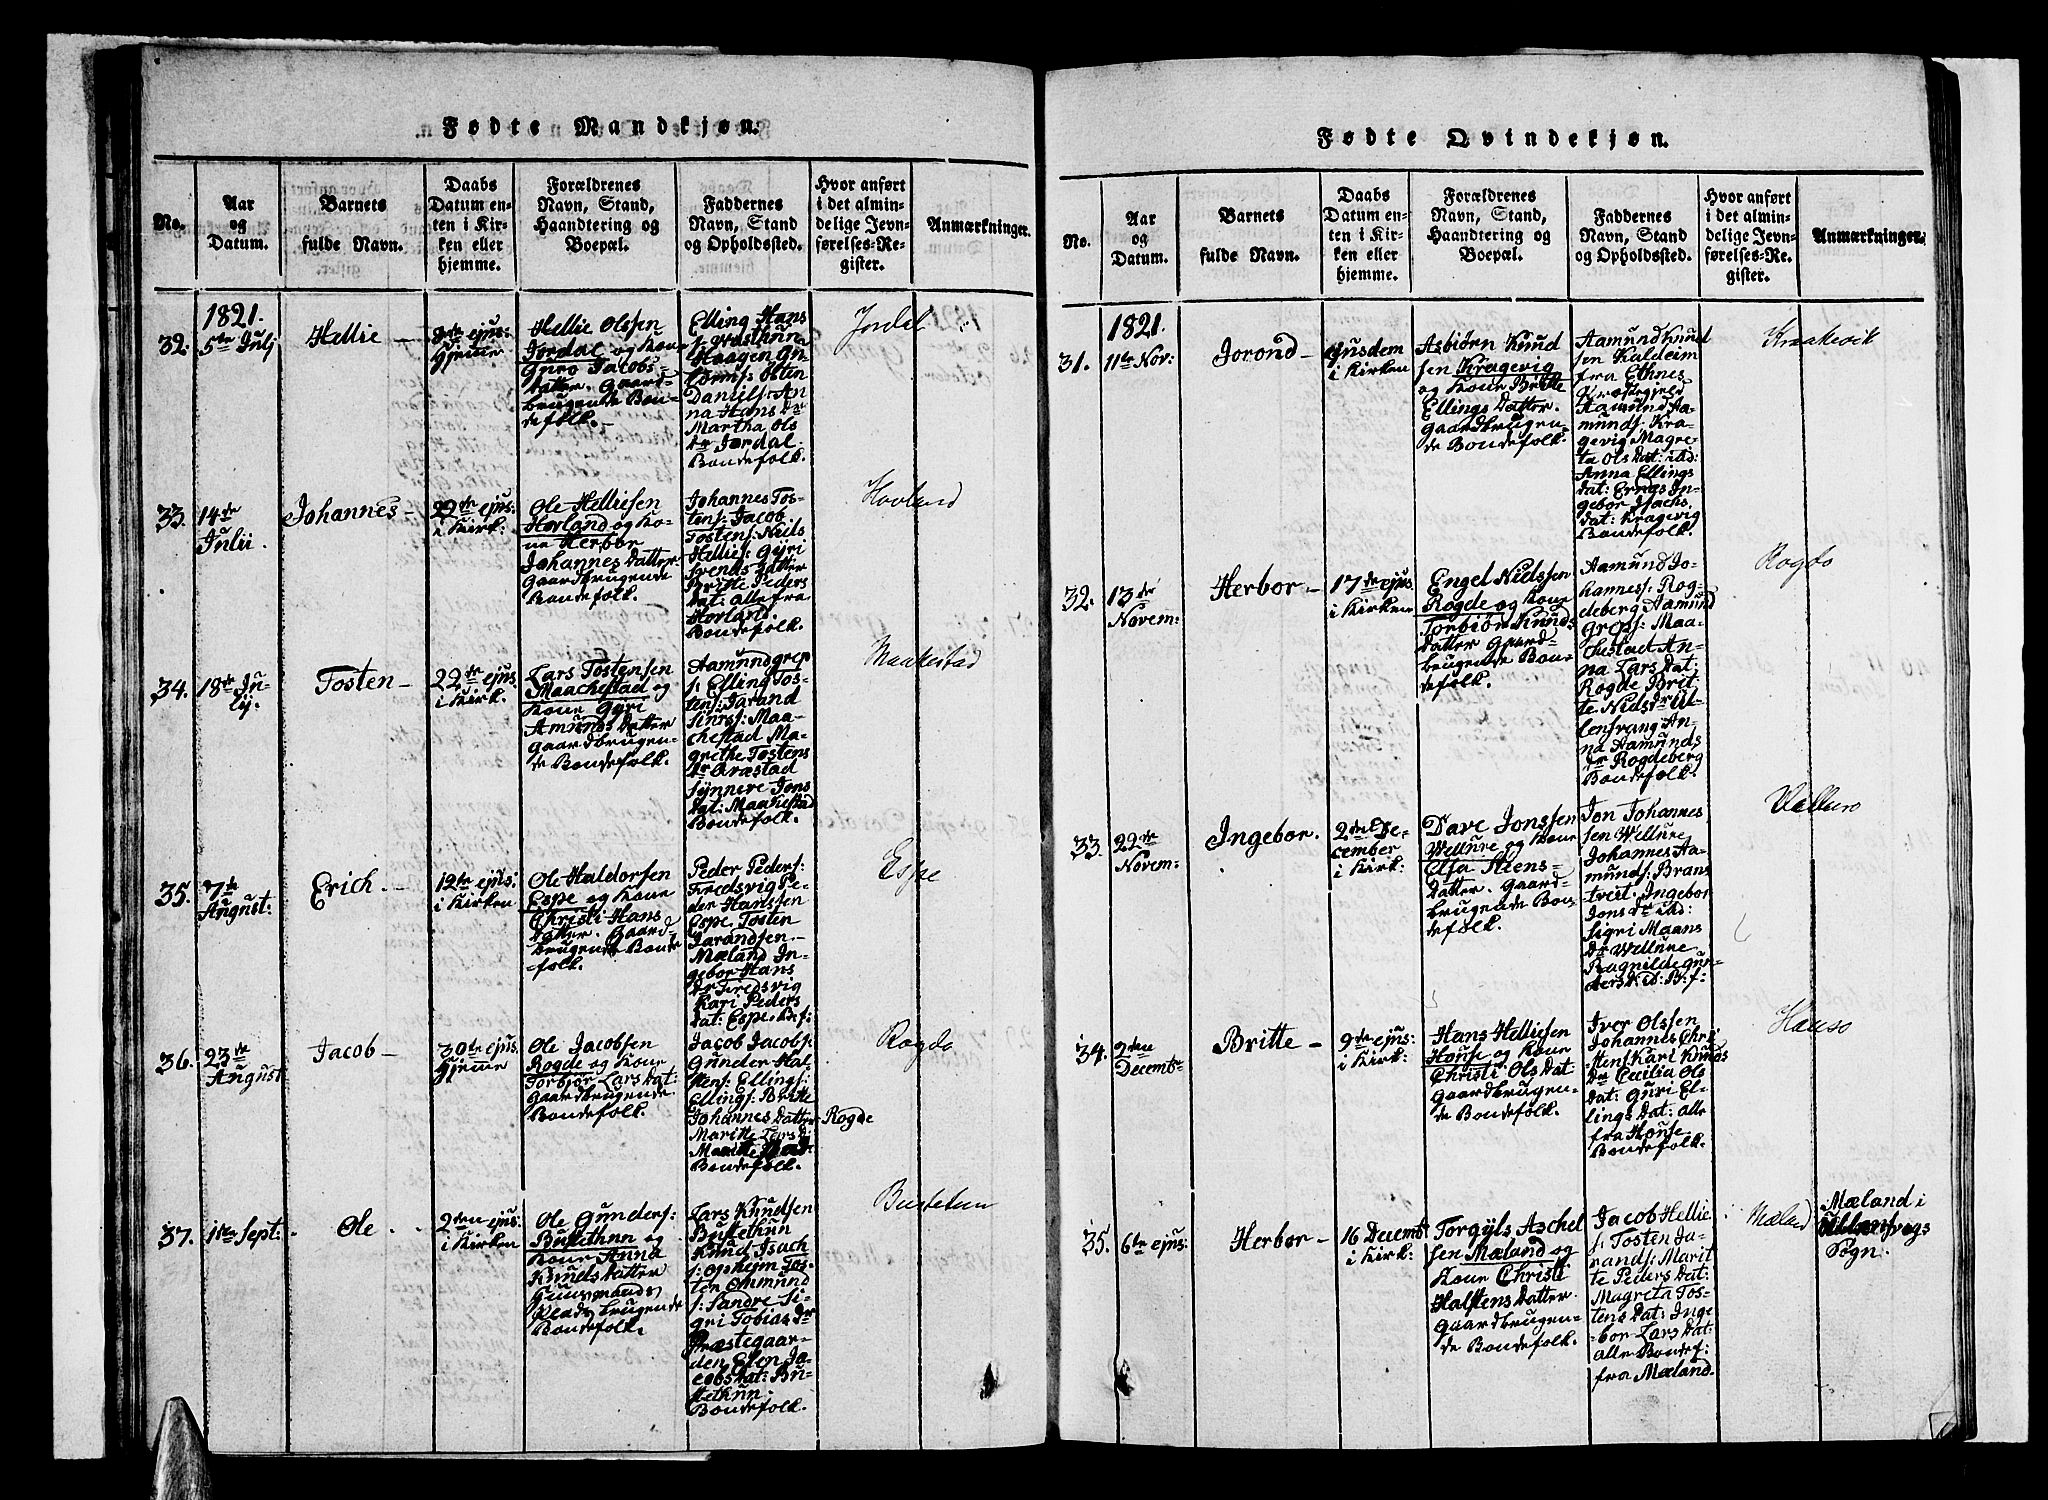 Fødte Mandkjøn.
No.
Aar
og
Datum.
Barnets
fulde Navn.
Daabs
Datum en-
ten i Kir-
ken eller
hjemme.
Forældrenes
Navn, Stand,
Haandtering og
Boepæl.
Faddernes
Navn, Stand
og Opholdssted.
Hvor anført
i det almin-
delige Jevn-
førelses-Re-
gister.
Anmærkninger.
1821.
32.
5te Julj
Hellie
8de ejus:
Hjeme
Hellie Olssen
Jordal og Kone
Gyro Jacobs-
datter. Gaard-
brugende Bon-
defolk.
Elling Hans
Haagen Gu
Daniels: An
na Hans Dr
Martha Ols
Dr Jordal.
Bondefolk.
Jordal
33.
14de
Julii.
Johannes
22de ejus:
i Kirk:
Ole Helliesen
Hovland og Ko-
ne Herbor
Johannes Datter
Gaardbrugende
Bondefolk.
Johannes Tos-
tens: Jacob
Tostens: Niels
Hellies: Gyri
Svends Datter
Britte Peders
Dat: alle fra
Hovland.
Bondefolk.
Hovland
34.
18de Ju-
lij.
Tosten
22de ejus.
i Kirk.
Lars Tostensen
Maachestad og
Kone Gyri
Amunds Datter
Gaardbrugen-
de Bondefolk.
Aamund
s: Elling Tos-
tens: Jarand
Maa-
chestad Ma-
grethe Tostens
Dr
Synnere Jons
Dat: Maakestad
Bondefolk.
Maakestad
35.
7de
August:
Erich.
12te ejus:
i Kirken
Ole Haldorsen
Espe og Kone
Christi Hans
Datter. Gaard-
brugende Bonde
folk.
Peder Peders:
Fredsvig Pe-
der Hanssen
Espe. Tosten
Jarandsen
Mæland In-
gebor Hans
Dr Fredsvig
Kari Peders
Dat: Espe.
Espe
36.
23de
August
Jacob
30te ejus.
Hjeme
Ole Jacobsen
Rogde og Kone
Torbjør Lars Dat:
Gaardbrugende
Bondefolk.
Jacob Jacobs:
Gunder Hal-
stens: Ellings:
Ellings: Britte
Johannes Datter
Maritte Lars D:
Bondefolk.
Rogdo
Rogde
37.
1ste Sept:
Ole
2den ejus:
i Kirken
Ole Gunders:
Bustethun og
Kone Anna
Knuds Datter
brugende
Bondefolk.
Lars Knudsen
Bustethun
Knud Isach
s: Opheim Tos-
ten Ommund
s: Sandre Si-
gri Tobias Dr
Præstegaar-
den Elen Ja-
cobs Dat: Bu-
stethun.
Bondefolk.
Bustetun
Fødte Qvindekjøn.
No.
Aar
og
Datum.
Barnets
fulde Navn.
Daabs
Datum en-
ten i Kir-
ken eller
hjemme.
Forældrenes
Navn, Stand,
Haandtering og
Boepæl.
Faddernes
Navn, Stand
og Opholdssted.
Hvor anført
i det almin-
delige Jevn-
førelses-Re-
gister.
Anmærkninger.
1821.
31.
11te Nov:
Jorond
Ejusdem
i Kirken
Asbiørn Knud
sen Kragevig
og Kone Britte
Ellings Datter.
Gaardbrugen-
de Bondefolk.
Aamund Knud
sen Kaldeim
fra Ethnes
Præstegield
Aamund Aa-
munds: Kra-
gevig Magre-
ta Ols Dat: ibd:
Anna Ellings
Dat: Ernes In-
gebor Isachs
Dat: Kragevig
Bondefolk.
Kraakevik
32.
13de
Novem:
Herbor
17de ejus.
i Kirken
Engel Nielssen
Rogde og Kone
Torbiør Knuds
Datter Gaard-
brugende Bon-
defolk.
Aamund Jo-
hanness: Rog-
deberg Aamund
Greps: Maa-
chestad An-
na Lars Dat:
Rogde Brit-
te Niels Dr Ul-
lensvang An-
na Aamunds
Dr Rogdeberg
Bondefolk.
Rogdo
33.
22de
Novem:
Ingebor.
2den De-
cember
i Kirk:
Dave Jonssen
Vellure og Kone
Elsa Steens-
Datter. Gaard-
brugende Bon-
defolk.
Jon Johannes
sen Vellure
Johannes Aa-
munds: Brans
tveit. Ingebor
Jons Dr ibd:
Sigri Maans
Dr Vellure
Ragnilde Gun-
ders D. ibd: B: f:
Velluro
34.
2den
Decemb:
Britte
9de ejus:
i Kirk:
Hans Helliesen
House og Kone
Christi Ols Dat:
Gaardbrugen-
de Bondefolk.
Iver Olssen
Johannes Chri
stens: Kari Knuds
Dr Cecilia Ols
Dat: Guri El-
lings Dat: alle
fra House
Bondefolk.
Hauso
35.
6te ejus:
Herbor
16 Decemb:
i Kirk:
Torgyls Aschel
sen Mæland og
Kone Christi
Halstens Datter.
Gaardbrugen-
de Bondefolk.
Jacob Hellie
s: Tosten Ja-
rands: Marit
te Peders Dat:
Magreta Tos-
tens Dat: Inge-
bor Lars Dat:
alle Bondef:
fra Mæland.
Mæland
Mæland i
Sogn.